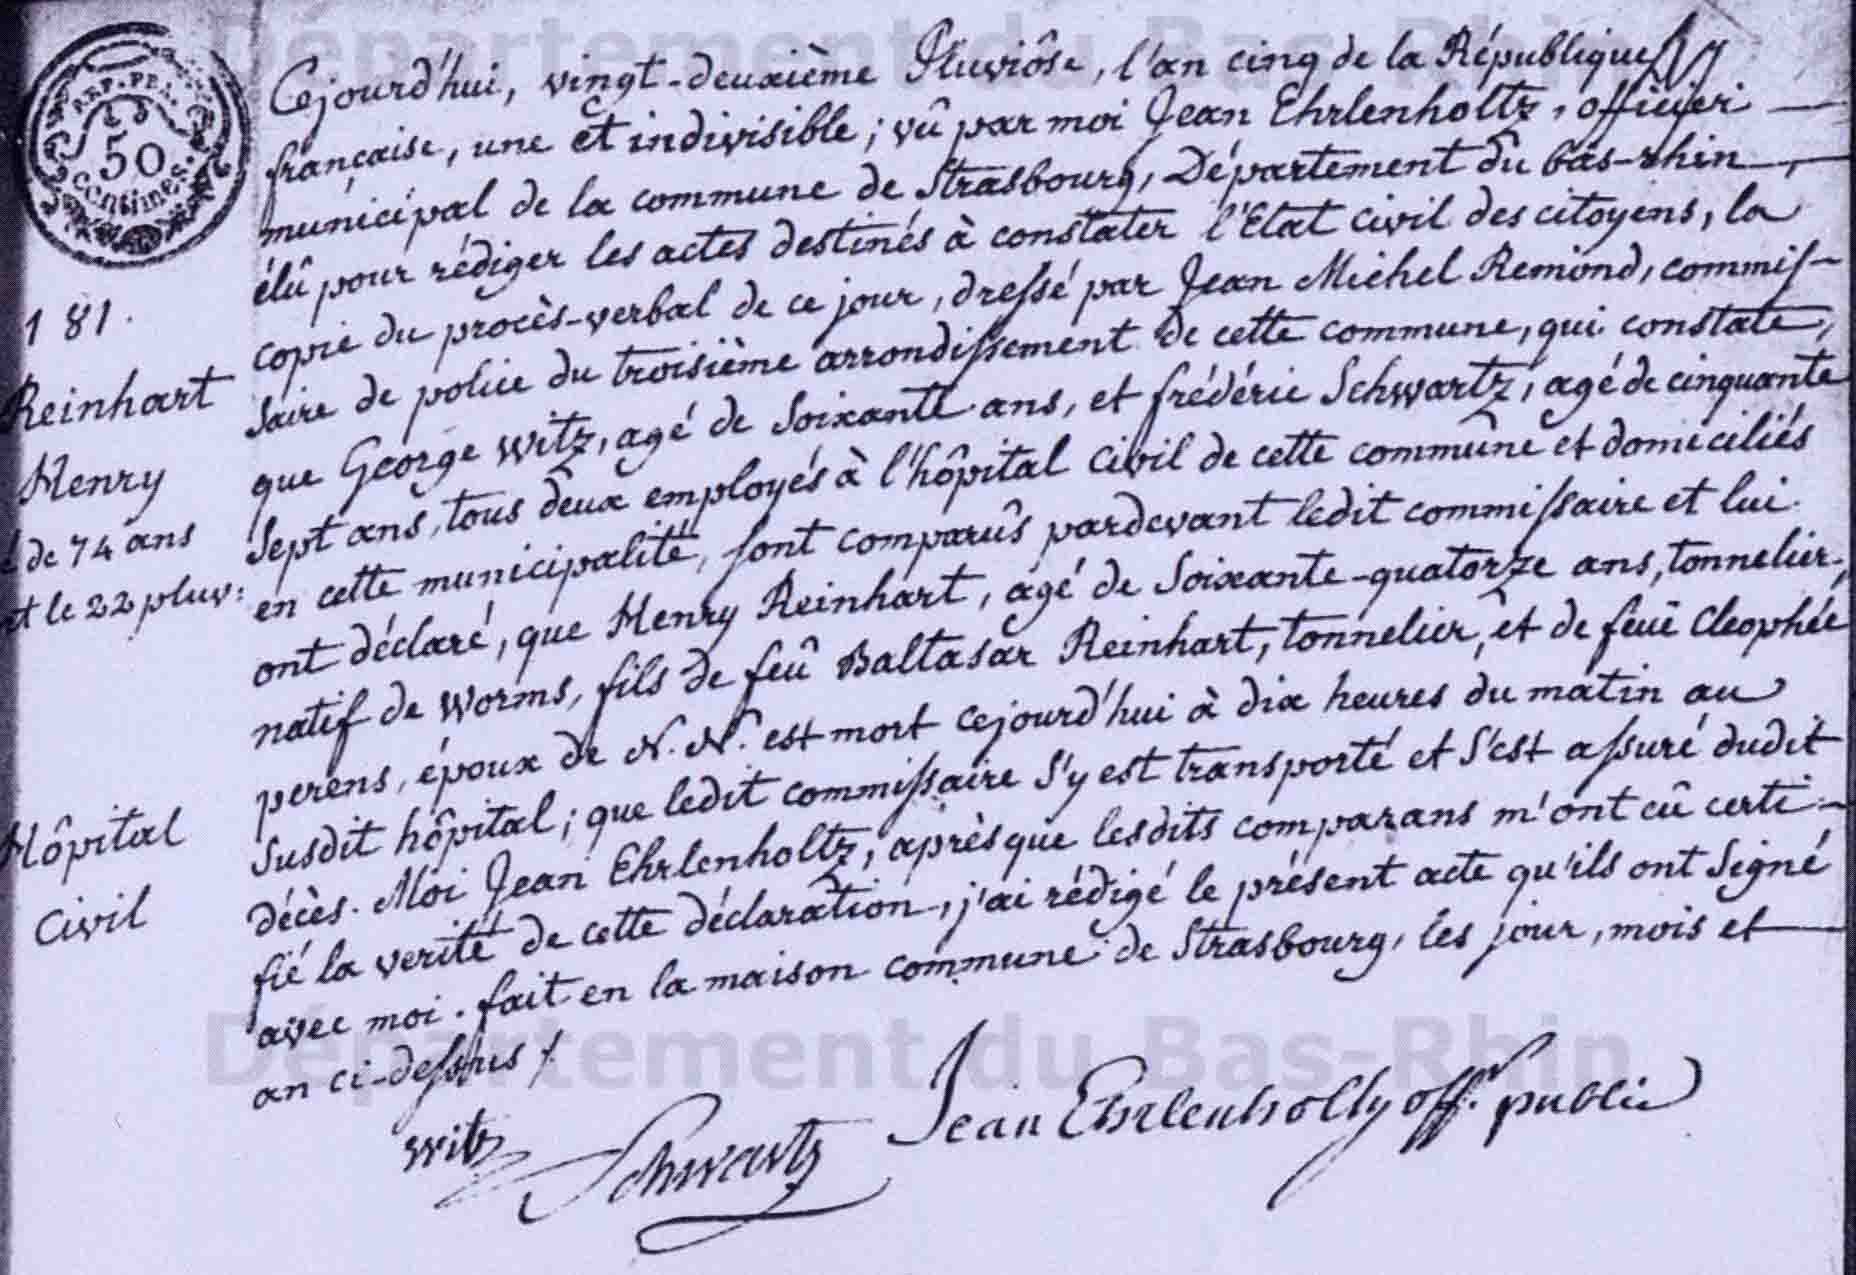 Département du Bas-Rhin
REP. FRA.
50
centimes.
181.
Reinhart
Henry
de 74 ans
le 22 pluv:
Hôpital
Civil
Cejourd'hui, vingt-deuxième Pluviôse, l'an cinq de la République
française, une et indivisible; vû par moi Jean Ehrlenholtz, officier
municipal de la commune de Strasbourg, Département du bas-rhin,
élû pour rédiger les actes destinés à constater l'Etat civil des citoyens, la
copie du procès-verbal de ce jour, dressé par Jean Michel Remond, commis-
saire de police du troisième arrondissement de cette commune, qui constate,
que George Witz, agé de Soixante ans, et frédéric Schwartz, agé de cinquante
Sept ans, tous deux employés à l'hôpital Civil de cette commune et domiciliés
en cette municipalité, sont comparûs pardevant ledit commissaire et lui
ont déclaré, que Henry Reinhart, agé de Soixante-quatorze ans, tonnelier,
natif de Worms, fils de feû Baltasar Reinhart, tonnelier, et de feuë Cleophée
perens, époux de N. N. est mort cejourd'hui à dix heures du matin au
Susdit hôpital; que ledit commissaire s'y est transporté et s'est assuré dudit
décès. Moi Jean Ehrlenholtz, après que lesdits comparans m'ont eû certi-
fié la verité de cette déclaration, j'ai rédigé le présent acte qu'ils ont Signé
avec moi. fait en la maison commune de Strasbourg, les jour, mois et
an ci-dessus
Witz
Schwartz
Jean Ehrlenholtz off. public
Département du Bas-Rhin